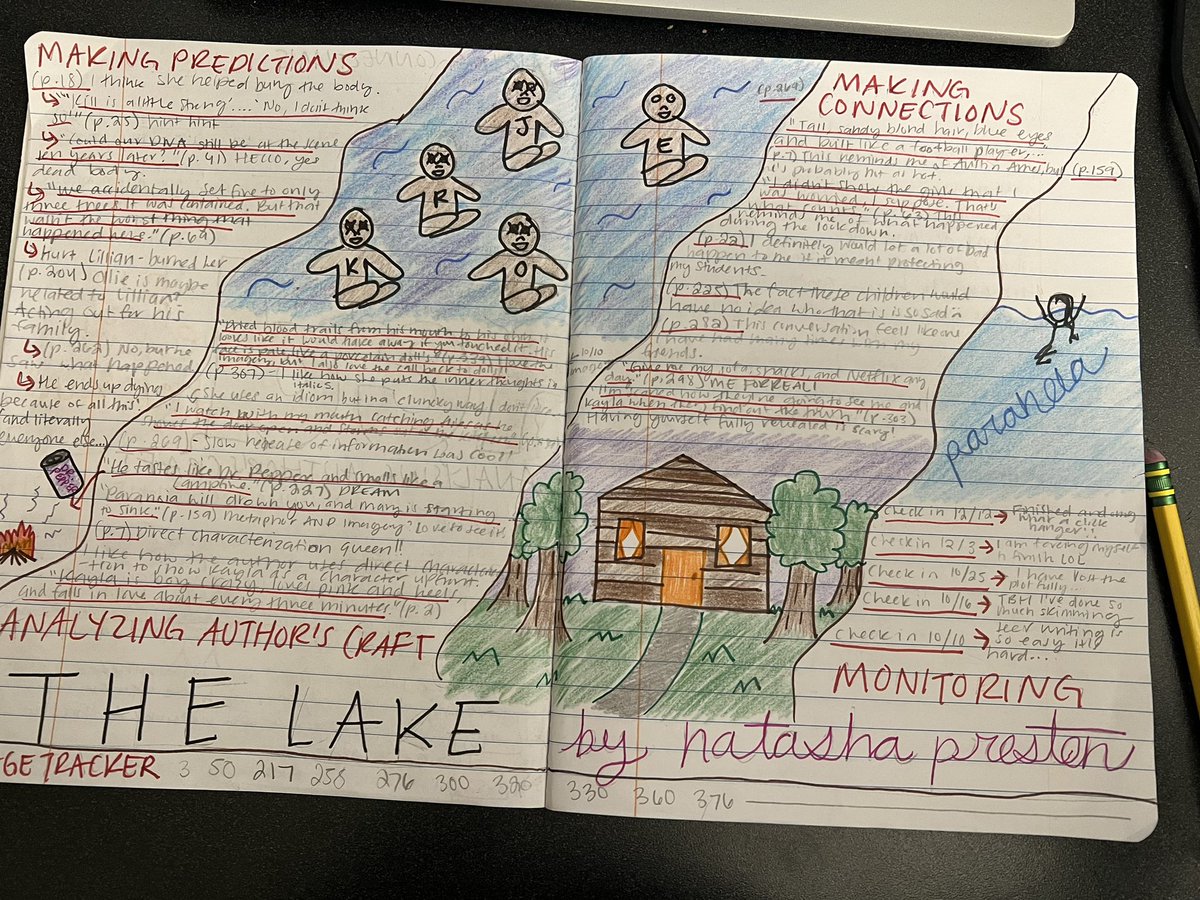 MAKING PREDICTIONS
(p.18) I think she helped bury the body.
"Kill is a little strong'.... 'No, I don't think
so'" (p.25) hint hint
"Could our DNA still be at the scene
ten years later?" (p.41) HELLO, yes
dead body.
"We accidentally set fire to only
three trees. It was contained. But that
wasn't the worst thing that
happened here." (p.64)
Hurt Lillian - burned her
(p.204) Ollie is maybe
related to Lillian?
Acting out for his
family.
(p.262) No, but he
what happened
He ends up dying
because of all this
and literally
everyone else...
J
R
K
O
E
"Dried blood trails from his mouth to his chin
looks like it would flake away if you touched it. His
face is pale like a porcelain doll's"
imagery, but also love the call back to dolly!!
(p.367) - I like how she puts the inner thoughts in
italics.
She uses an idiom but in a clunky way I don't
"I watch with my mouth catching flies as he
(p.269) - Slow release of information was cool!
DR. PEPPER
"He tastes like Dr. Pepper and smells like a
campfire." (p.227) DREAM
"Paranoia will drown you, and mary is starting
to sink." (p.159) metaphor AND imagery? Love to see it.
(p.7) Direct characterization queen!!
I like how the author uses direct character-
tion to show Kayla as a character upfront.
"Kayla is boy crazy, lives pink and heels,
and falls in love about every three minutes." (p.2)
ANALYZING AUTHOR'S CRAFT
(p.269)
MAKING
CONNECTIONS
"Tall, sandy blond hair, blue eyes
and built like a football player,...
p.7) This reminds me of but (p.159)
is probably not as hot.
"I didn't show the girls that I
was worried, I suppose. That's
what counts." (p.63) This
reminds me of what happened
during the lockdown.
(p.22) I definitely would let a lot of bad
happen to me if it meant protecting
my students.
(p.225) The fact these children would
have no idea who that is is so sad
(p.282) This conversation feels like one
I have had many times with
friends.
"Give me my sofa, snacks, and Netflix any
day." (p.298) ME FOR REAL!
how they're going to see me and
Kayla when they find out the truth" (p.303)
Having yourself fully revealed is scary!
paranoia
Check in 12/12 → Finished and omg
what a cliff
hanger!!
Check in 12/3 → I am forcing myself
to finish LOL
Check in 10/25 → I have lost the
plot fully...
Check in 10/16 → TBH I've done so
much skimming
Check in 10/10 → teer writing is
so easy it is
hard....
MONITORING
THE LAKE
by natasha preston
GE TRACKER 3 50 217 258 276 300 320 330 360 376